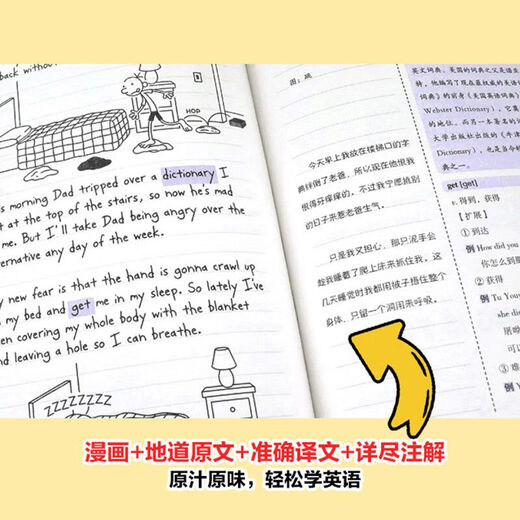 back without
HOP
's morning Dad tripped over a dictionary I
t at the top of the stairs, so now he's mad
me. But I'll take Dad being angry over the
ernative any day of the week.
y new fear is that the hand is gonna crawl up
my bed and get me in my sleep. So lately I've
en covering my whole body with the blanket
nd leaving a hole so I can breathe.
ZZZZZZZZ
图：跳
今天早上我放在楼梯口的字
典绊倒了老爸，所以现在他恨我
恨得牙痒痒的。不过我宁愿挑别
的日子来惹老爸生气。
只是我又担心，那只泥手会
趁我睡着了爬上床来抓住我。这
几天睡觉时我都用被子捂住整个
身体，只留一个洞用来呼吸。
英文词典。美国的词典之父是诺亚
特，他编写了现在最权威的英语词
词典》的前身《美国英语词典》（
Webster Dictionary），它奠
的地位。而另一本著名的词
大学出版社出版的《牛津
Dictionary），也是当今
典之一。
get [get]
v. 得到，获得
【扩展】
① 到达
例 How did you
你怎么到那
② 获得
例 Tu You
she did
屠呦
可
③ 难
例
漫画+地道原文+准确译文+详尽注解
原汁原味，轻松学英语